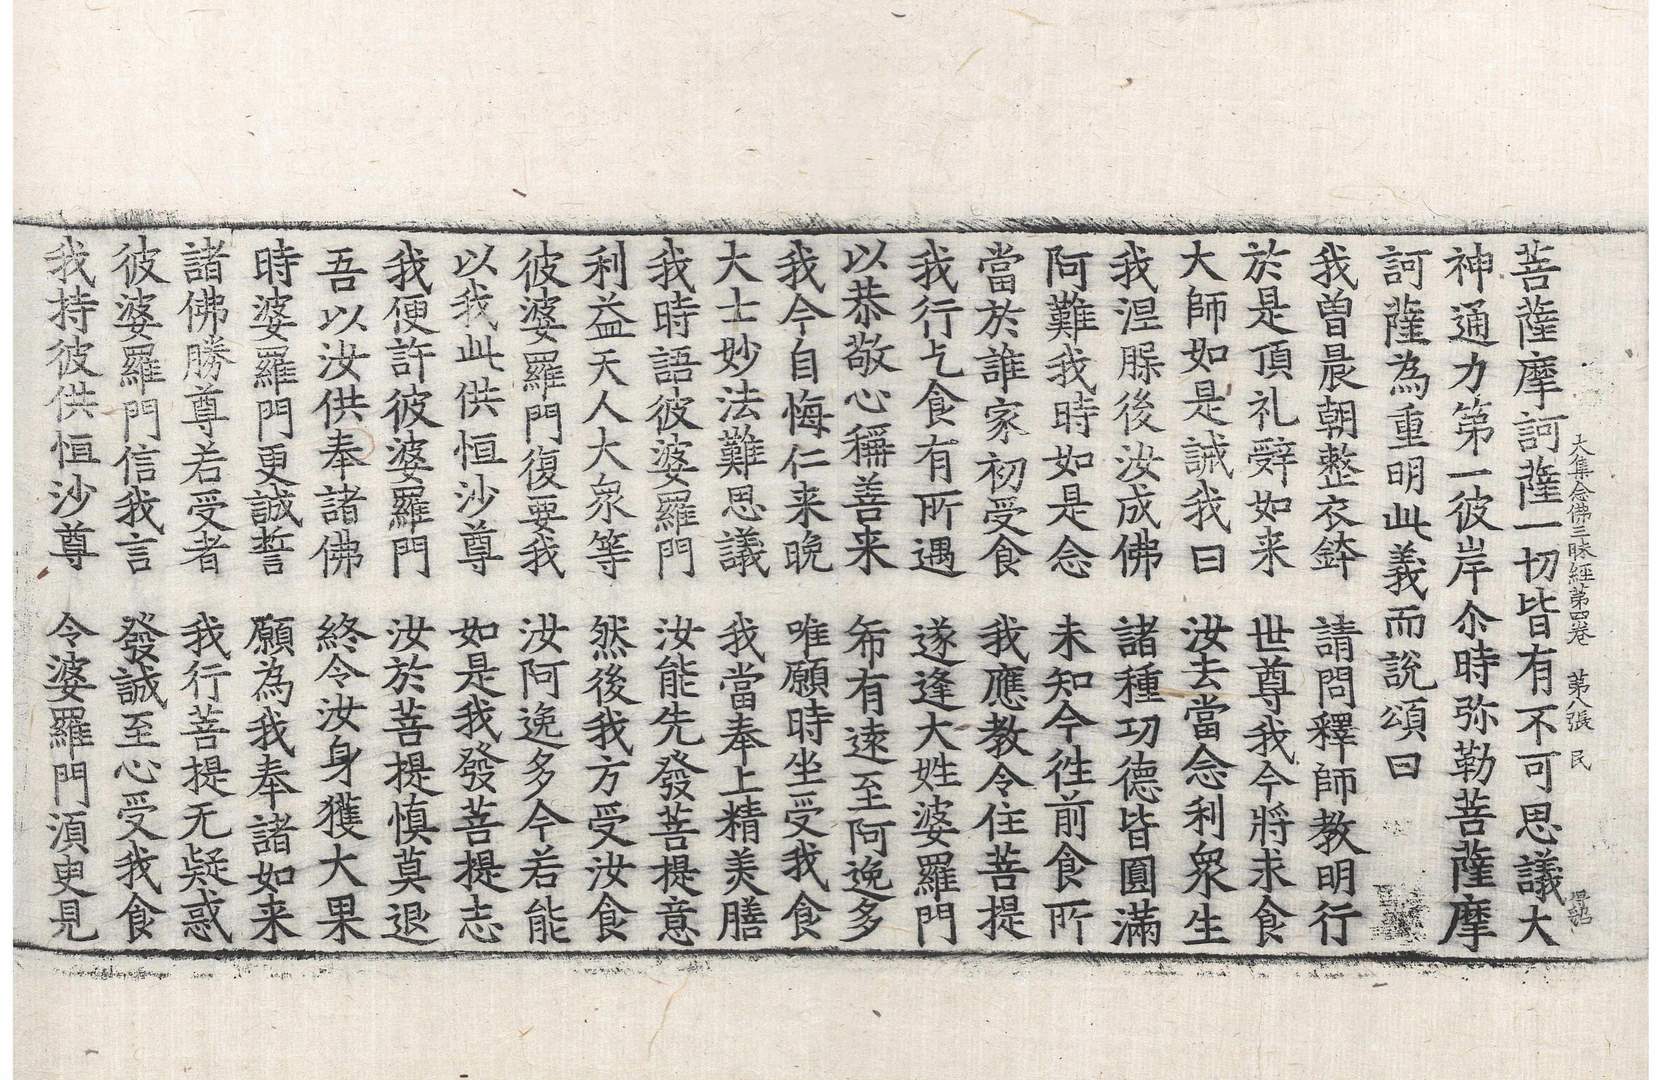 大集念佛三昧經第四卷　第八張　民
菩薩摩訶薩一切皆有不可思議大
神通力第一彼岸尒時弥勒菩薩摩
訶薩為重明此義而說頌曰
我曾晨朝整衣鉢　請問釋師教明行
於是頂礼辤如来　世尊我今將求食
大師如是誡我曰　汝去當念利衆生
我涅槃後汝成佛　諸種功德皆圓滿
阿難我時如是念　未知今徃前食所
當於誰家初受食　我應教令住菩提
我行乞食有所遇　遂逢大姓婆羅門
以恭敬心稱善来　希有遠至阿逸多
我今自悔仁来晚　唯願時坐受我食
大士妙法難思議　我當奉上精美膳
我時語彼婆羅門　汝能先發菩提意
利益天人大衆等　然後我方受汝食
彼婆羅門復要我　汝阿逸多今若能
以我此供恒沙尊　如是我發菩提志
我便許彼婆羅門　汝於菩提慎莫退
吾以汝供奉諸佛　終令汝身獲大果
時婆羅門更誠誓　願為我奉諸如来
諸佛勝尊若受者　我行菩提无疑惑
彼婆羅門信我言　發誠至心受我食
我持彼供恒沙尊　令婆羅門湏臾見